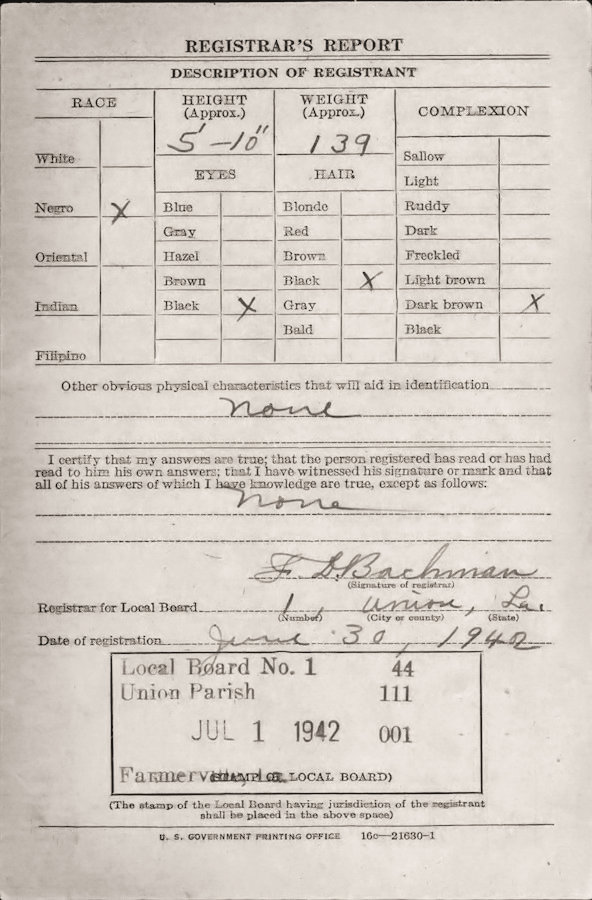 REGISTRAR'S REPORT
DESCRIPTION OF REGISTRANT
RACE
HEIGHT (Approx.)
WEIGHT (Approx.)
COMPLEXION
5'-10"
139
White
EYES
HAIR
Sallow
Light
Negro X
Blue
Blonde
Ruddy
Gray
Red
Dark
Oriental
Hazel
Brown
Freckled
Brown
Black X
Light brown
Indian
Black X
Gray
Dark brown X
Bald
Black
Filipino
Other obvious physical characteristics that will aid in identification
None
I certify that my answers are true; that the person registered has read or has had
read to him his own answers; that I have witnessed his signature or mark and that
all of his answers of which I have knowledge are true, except as follows:
None
F. D. Bachman
(Signature of registrar)
Registrar for Local Board 1, Union, La.
(Number) (City or county) (State)
Date of registration June 30, 1942
Local Board No. 1 44
Union Parish 111
JUL 1 1942 001
Farmerville, La.
(STAMP OF LOCAL BOARD)
(The stamp of the Local Board having jurisdiction of the registrant
shall be placed in the above space)
U. S. GOVERNMENT PRINTING OFFICE 16c—21630-1